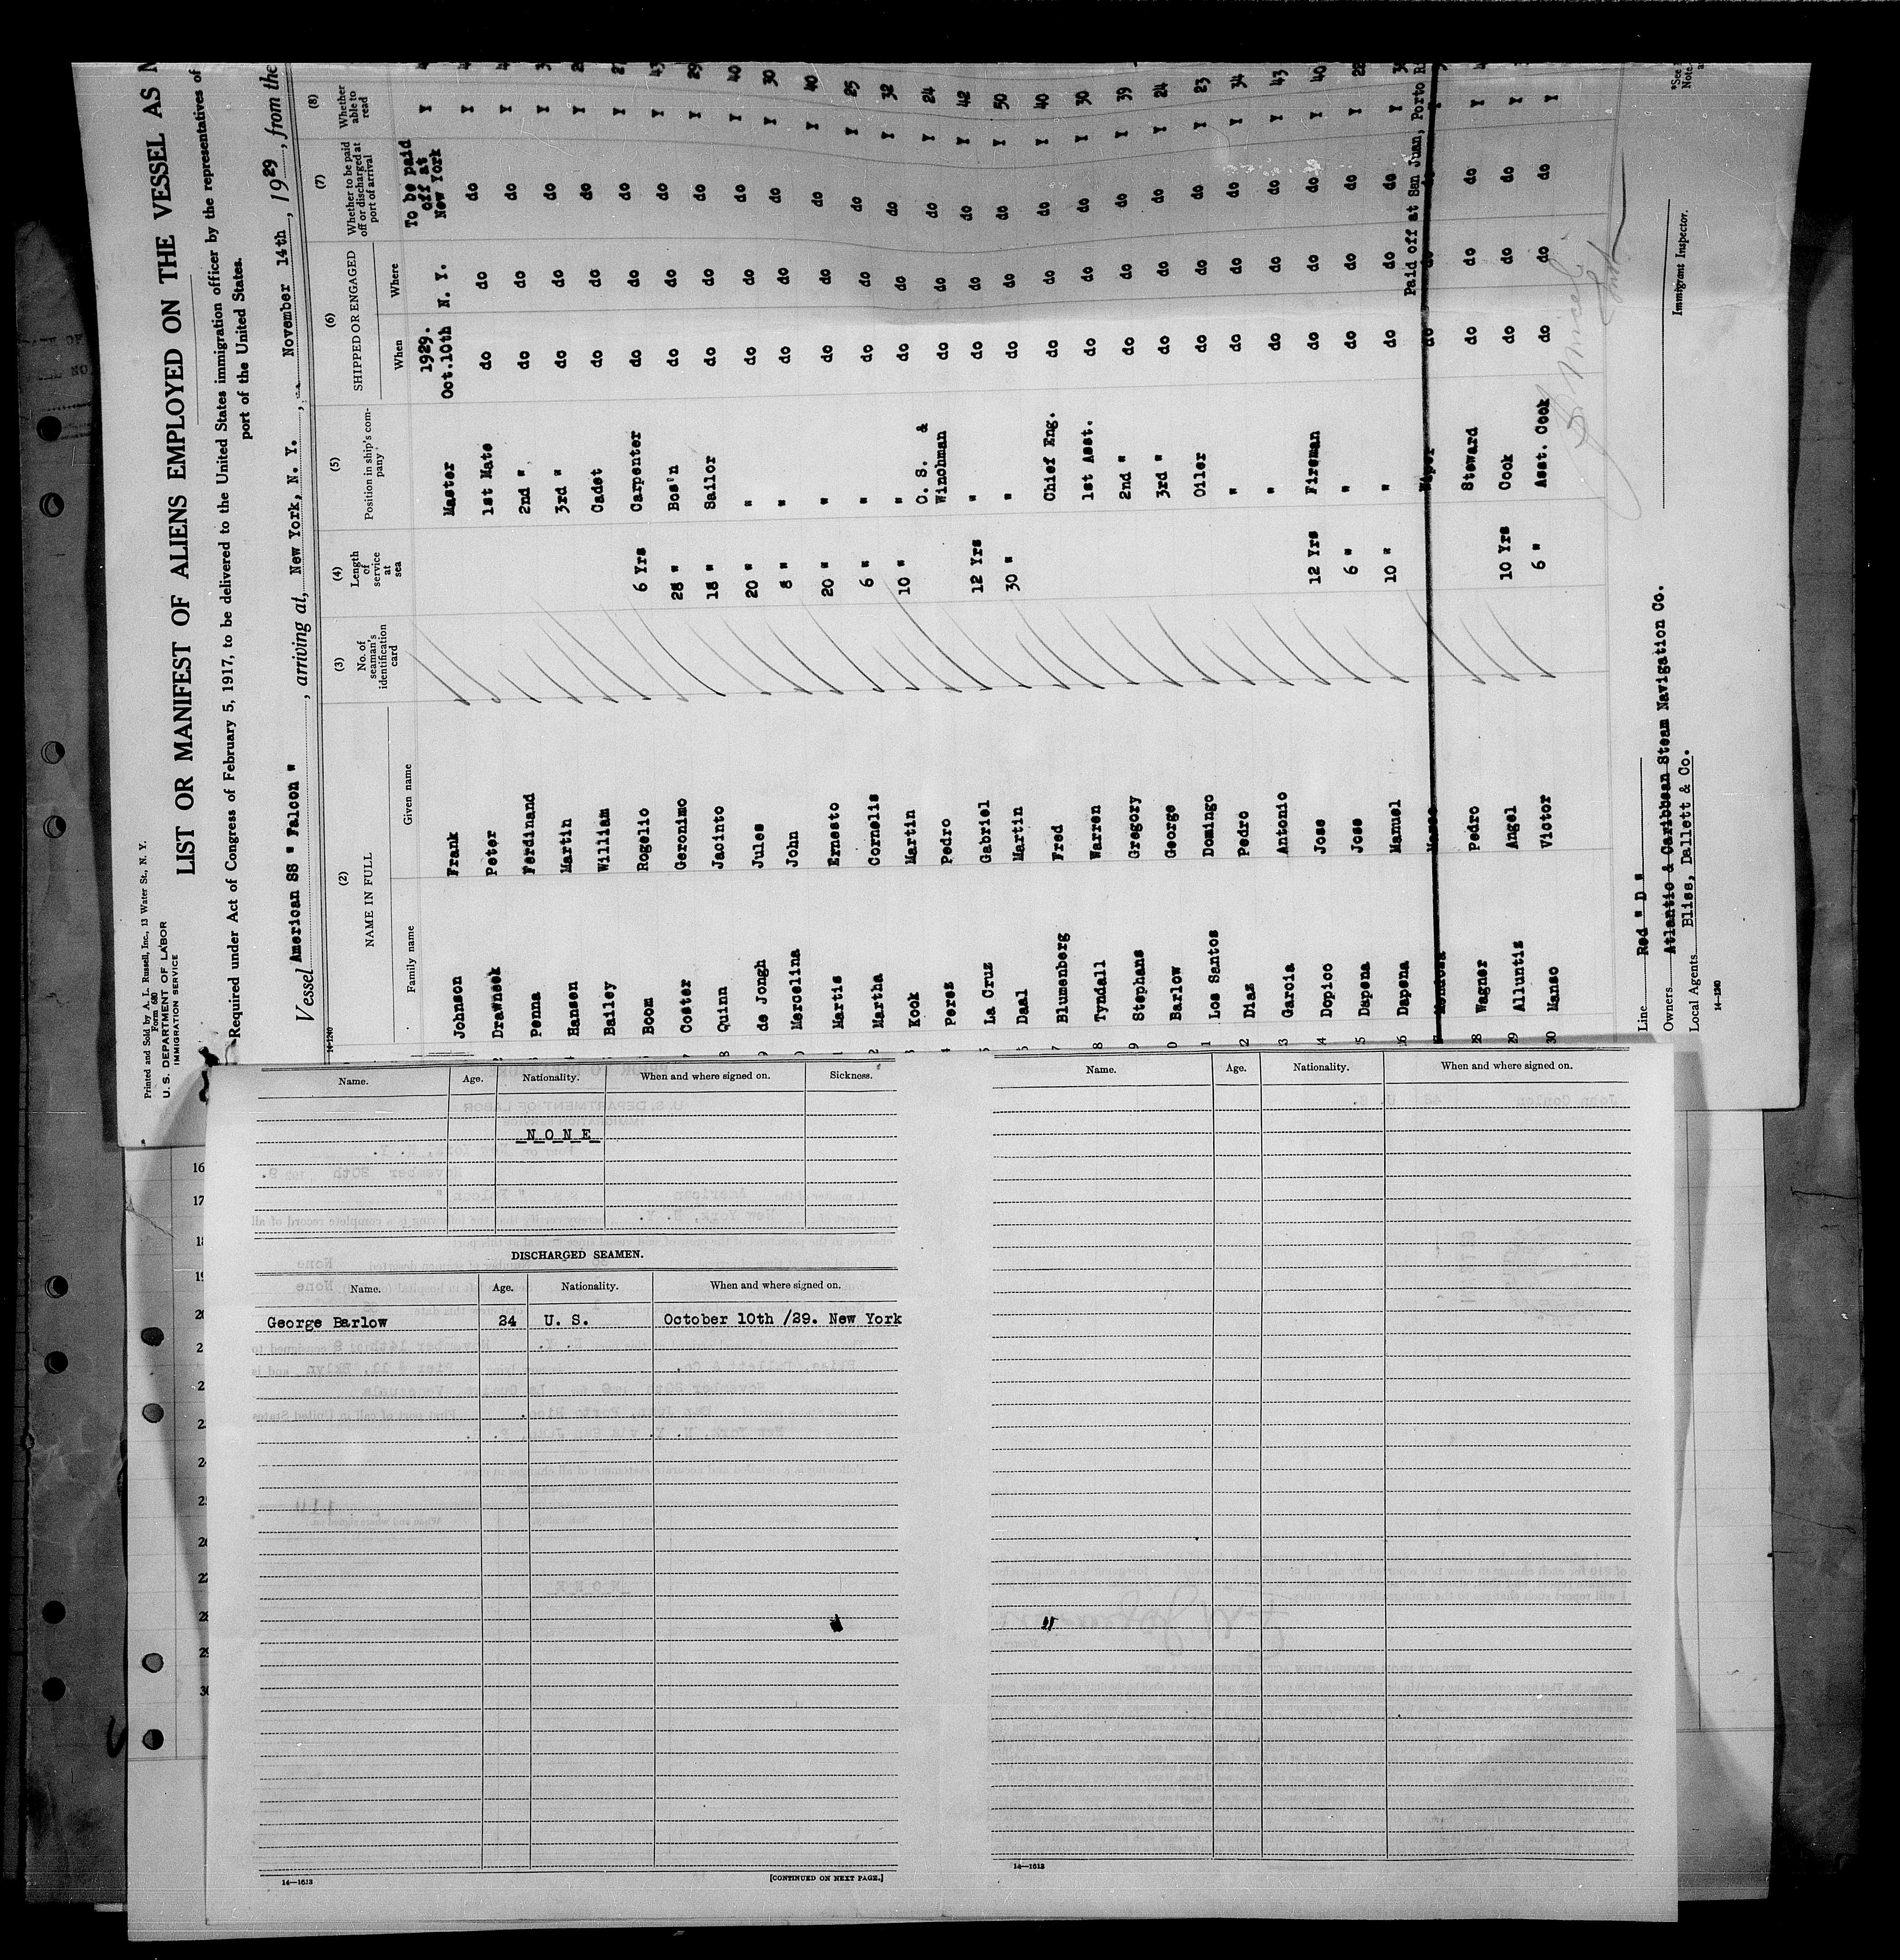 Printed and Sold by A. L. Russell, Inc., 13 Water St., N. Y.
Form 680
U. S. DEPARTMENT OF LABOR
IMMIGRATION SERVICE
LIST OR MANIFEST OF ALIENS EMPLOYED ON THE VESSEL AS
Required under Act of Congress of February 5, 1917, to be delivered to the United States immigration officer by the representatives of
port of the United States.
Vessel American SS " Falcon " , arriving at, New York, N. Y. , November 14th , 1929 , from the
14-1240
(2) (3) (4) (5) (6) (7) (8)
NAME IN FULL No. of seaman's identification card Length of service at sea Position in ship's company SHIPPED OR ENGAGED Whether to be paid off or discharged at port of arrival Whether able to read
Family name Given name When Where
Johnson Frank Master 1929. Oct.10th N. Y. To be paid off at New York Y
Drawneek Peter 1st Mate do do do Y
Penna Ferdinand 2nd " do do do Y
Hansen Martin 3rd " do do do Y
Bailey William Cadet do do do Y
Boom Rogelio 6 Yrs Carpenter do do do Y
Coster Geronimo 28 " Bos'n do do do Y
8 Quinn Jacinto 18 " Sailor do do do Y
9 de Jongh Jules 20 " " do do do Y
Mercelina John 8 " " do do do Y 30
1 Martis Ernesto 20 " " do do do Y 40
2 Martha Cornelis 6 " " do do do Y 25
Kook Martin 10 " " do do do Y 32
Perez Pedro O. S. & Winchman do do do Y 24
La Cruz Gabriel 12 Yrs " do do do Y 42
Daal Martin 30 " " do do do Y 50
7 Blumenberg Fred Chief Eng. do do do Y 40
8 Tyndall Warren 1st Asst. do do do Y 30
9 Stephans Gregory 2nd " do do do Y 39
0 Barlow George 3rd " do do do Y 24
1 Los Santos Domingo Oiler do do do Y 23
2 Diaz Pedro " do do do Y 34
3 Garcia Antonio " do do do Y 43
4 Dopico Jose 12 Yrs Fireman do do do Y 40
5 Dapena Jose 6 " " do do do Y 28
26 Dapena Manuel 10 " " do do do Y
Mendosa Wiper do do Paid off at San Juan, Porto
28 Wagner Pedro Steward do do do Y
29 Alluntiz Angel 10 Yrs Cook do do do Y
30 Manso Victor 6 " Asst. Cook do do do Y
Line Red " D "
Owners Atlantic & Caribbean Steam Navigation Co.
Local Agents Bliss, Dallett & Co.
14-1240
Immigrant Inspector.
*See
Note.
Name. Age. Nationality. When and where signed on. Sickness.
N O N E
DISCHARGED SEAMEN.
Name. Age. Nationality. When and where signed on.
George Barlow 24 U. S. October 10th /29. New York
14—1613 [CONTINUED ON NEXT PAGE.]
Name. Age. Nationality. When and where signed on.
14—1613
16
17
20
28